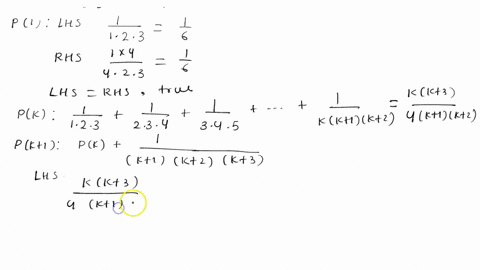 P(1): LHS 1/(1·2·3) = 1/6
RHS (1×4)/(4·2·3) = 1/6
LHS = RHS, true
P(K): 1/(1·2·3) + 1/(2·3·4) + 1/(3·4·5) + ··· + 1/(K(K+1)(K+2)) = K(K+3)/(4(K+1)(K+2))
P(K+1): P(K) + 1/((K+1)(K+2)(K+3))
LHS K(K+3)/(4 (K+1) ·